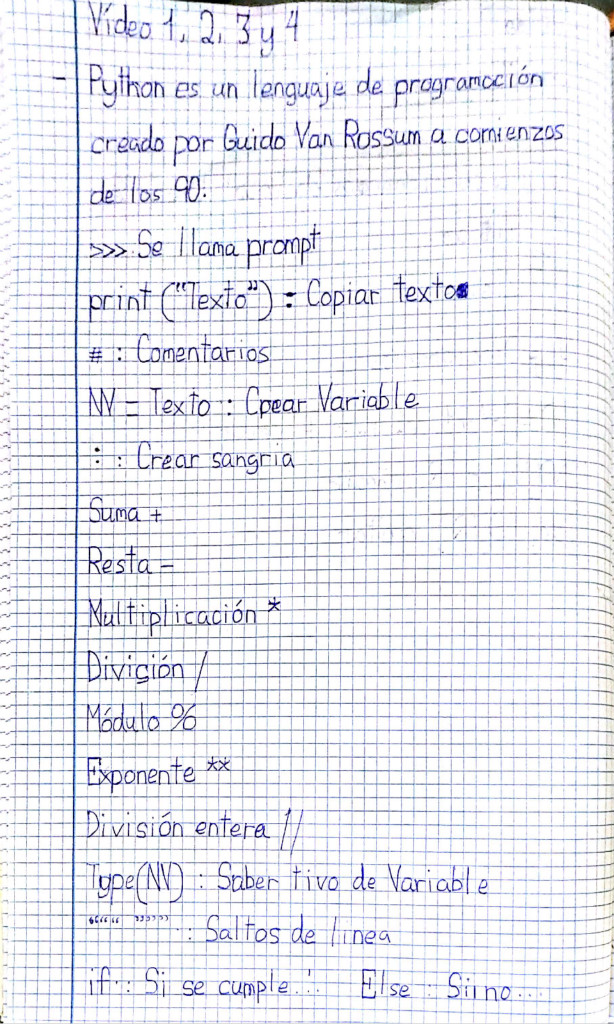 Vídeo 1, 2, 3 y 4
- Python es un lenguaje de programación
creado por Guido Van Rossum a comienzos
de los 90.
>>> Se llama prompt
print ("Texto") : Copiar texto
# : Comentarios
NV = Texto : Crear Variable
: : Crear sangria
Suma +
Resta -
Multiplicación *
División /
Módulo %
Exponente **
División entera //
Type(NV) : Saber tivo de Variable
““““ ””””” : Saltos de linea
if : Si se cumple... Else : Si no...